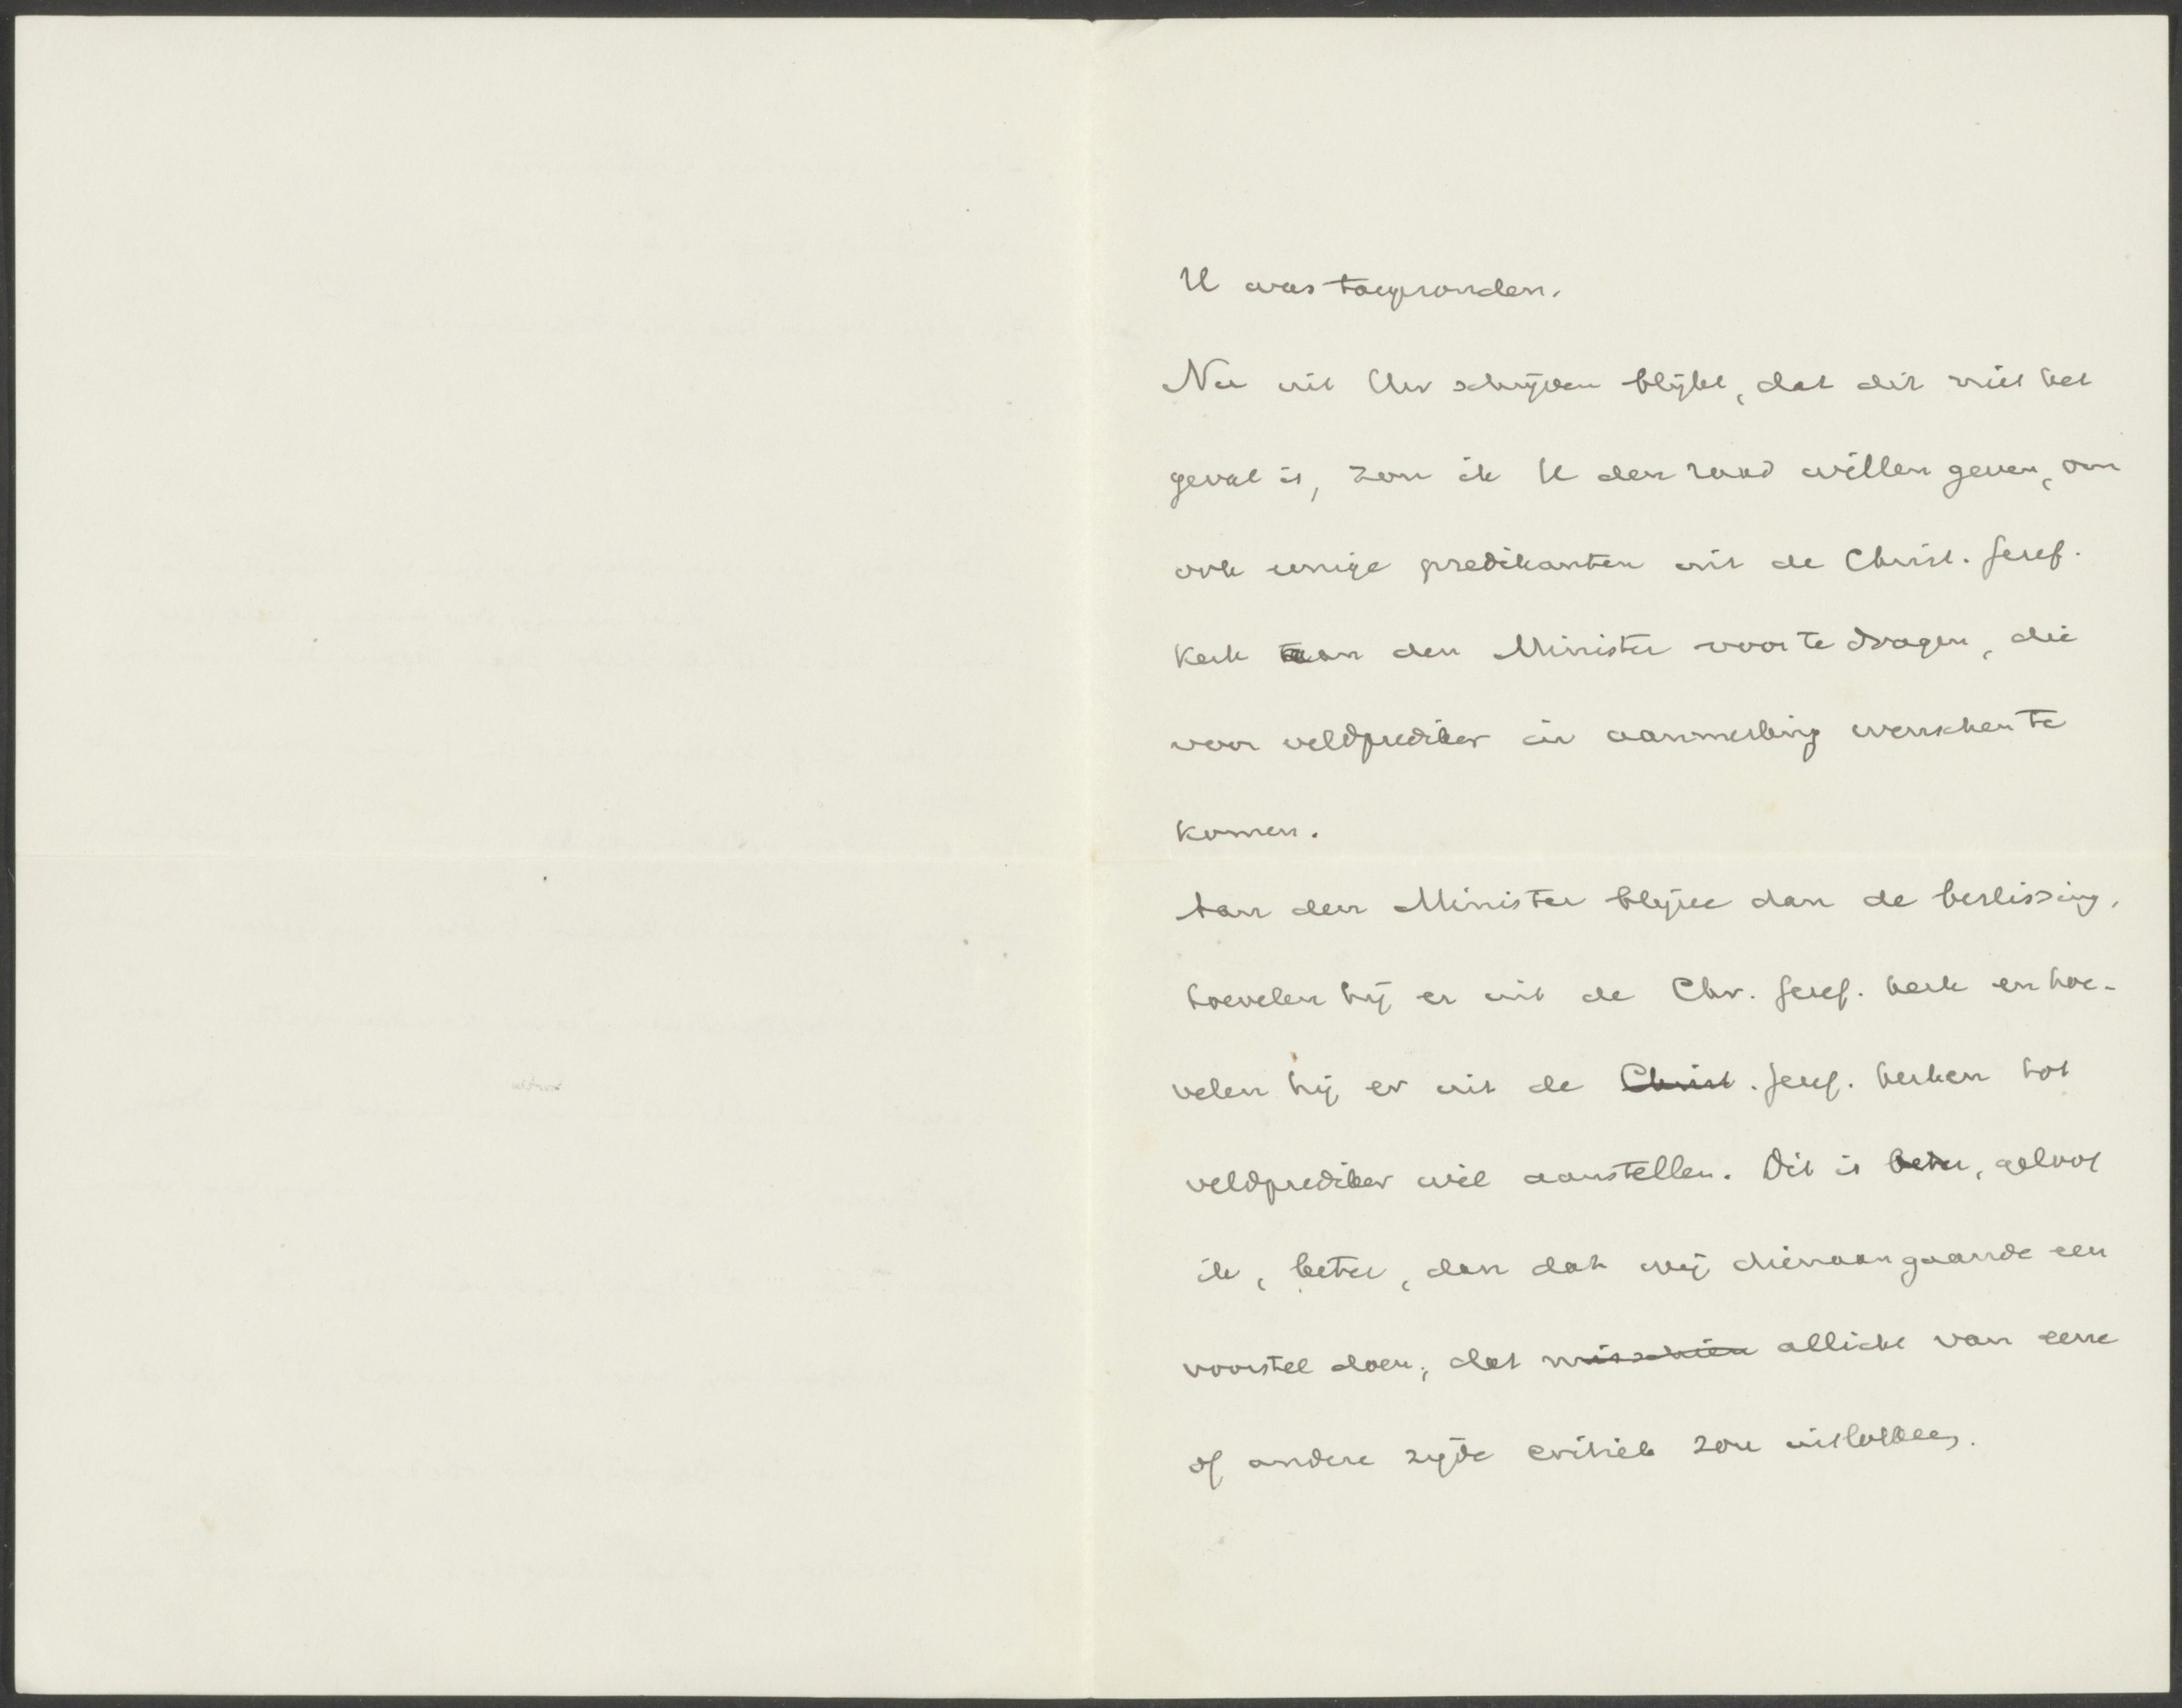 U was toegezonden.
Nu uit Uw schrijven blijkt, dat dit niet het
geval is, zou ik U den raad willen geven, om
ook eenige predikanten uit de Christ. Geref.
Kerk aan den Minister voor te dragen, die
voor veldprediker in aanmerking wenschen te
komen.
Aan den Minister blijve dan de beslissing,
hoevelen hij er uit de Chr. Geref. kerk en hoe-
velen hij er uit de Christ. Geref. kerken tot
veldprediker wil aanstellen. Dit is beter, geloof
ik, beter, dan dat wij dienaangaande een
voorstel doen, dat misschien allicht van eene
of andere zijde critiek zou uitlokken.